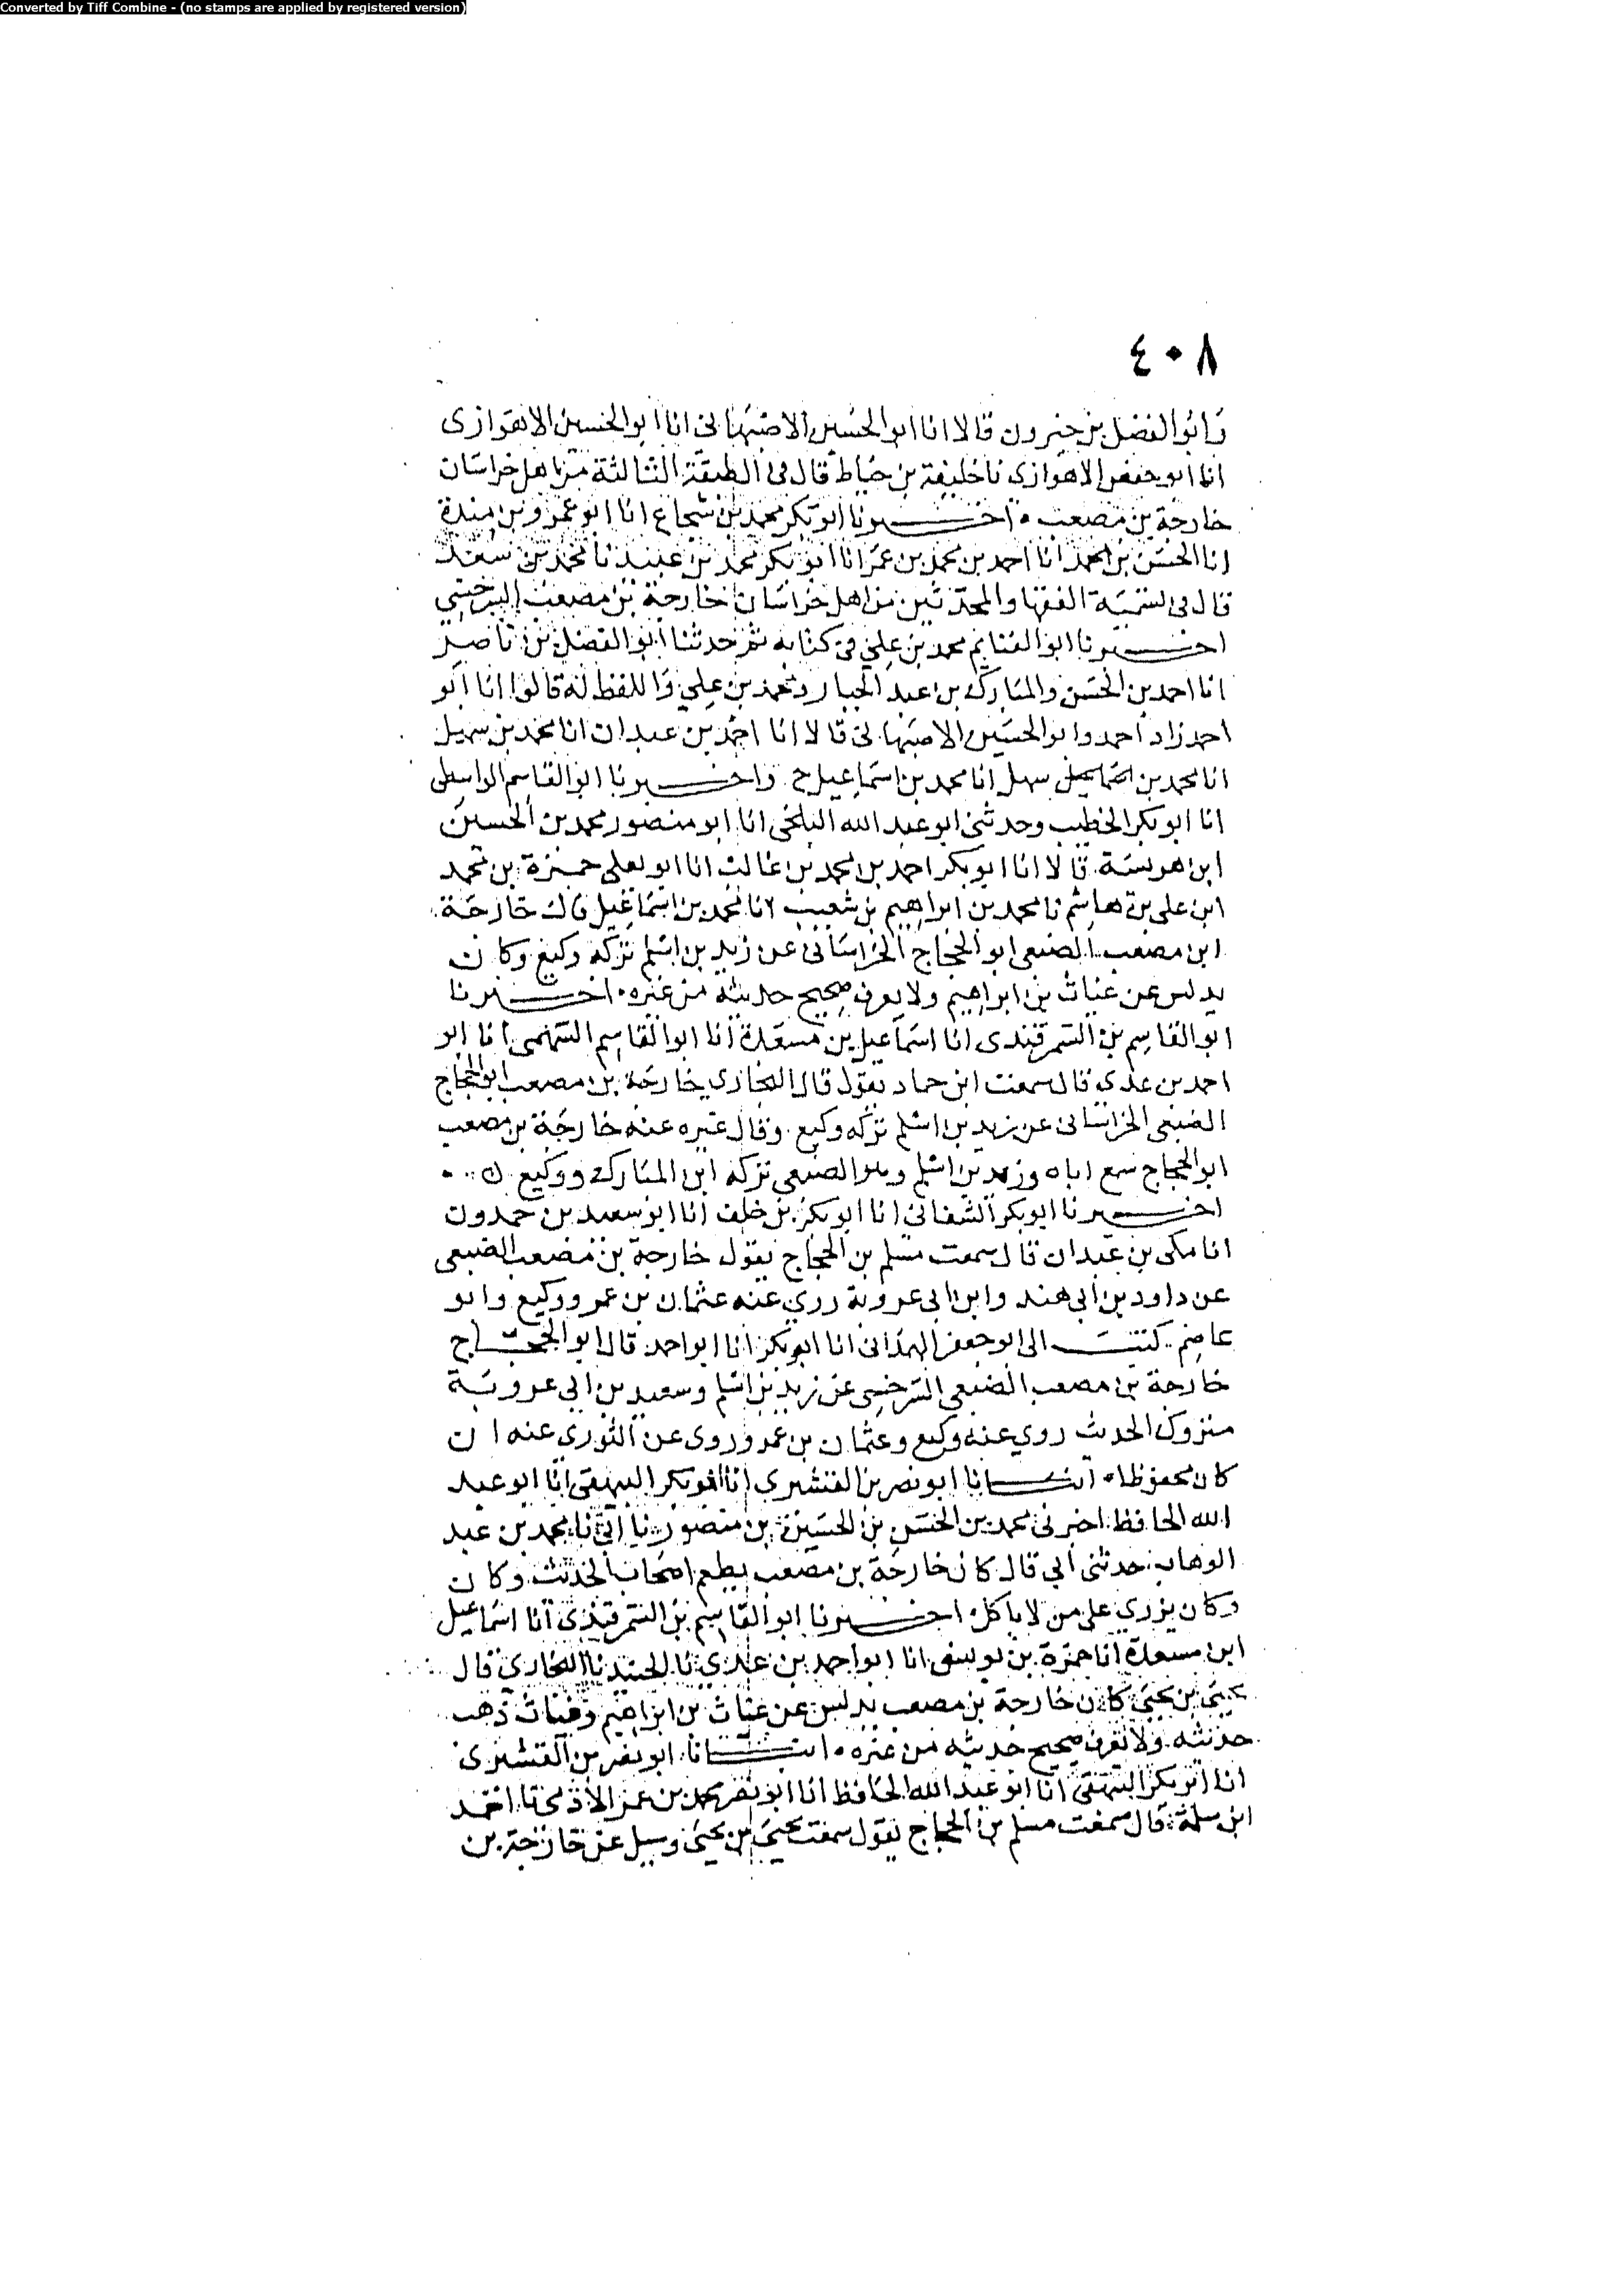 Converted by Tiff Combine - (no stamps are applied by registered version)
٤٠٨
وابو الفضل بن خيرون قالا انا ابو الحسين الاصبهاني انا ابو الحسين الاهوازي
انا ابو حفص الاهوازي نا خليفة بن خياط قال في الطبقة الثالثة من اهل خراسان
خارجة بن مصعب اخبرنا ابو بكر محمد بن شجاع انا ابو عمرو بن مندة
انا الحسن بن محمد انا احمد بن محمد بن عمر انا ابو بكر محمد بن عبيد نا محمد بن سعد
قال في تسمية الفقها والمحدثين من اهل خراسان خارجة بن مصعب السرخسي
اخبرنا ابو الغنايم محمد بن علي في كتابه ثم حدثنا ابو الفضل بن ناصر
انا احمد بن الحسن والمبارك بن عبد الجبار ومحمد بن علي واللفظ له قالوا انا ابو
احمد زاد احمد وابو الحسين الاصبهاني قالا انا احمد بن عبدان انا محمد بن سهيل
انا محمد بن سهل انا محمد بن اسماعيل ح واخبرنا ابو القاسم الواسطي
انا ابو بكر الخطيب وحدثني ابو عبد الله البلخي انا ابو منصور محمد بن الحسين
ابن هريسة قالا انا ابو بكر احمد بن محمد بن غالب انا ابو يعلى حمزة بن محمد
ابن علي بن هاشم نا محمد بن ابراهيم بن شعيب انا محمد بن اسماعيل قال خارجة
ابن مصعب الضبعي ابو الحجاج الخراساني عن زيد بن اسلم تركه وكيع وكان
يدلس عن غياث بن ابراهيم ولا يعرف صحيح حديثه من غيره اخبرنا
ابو القاسم بن السمرقندي انا اسماعيل بن مسعدة انا ابو القاسم السهمي انا ابو
احمد بن عدي قال سمعت ابن حماد يقول قال البخاري خارجة بن مصعب ابو الحجاج
الضبعي الخراساني عن زيد بن اسلم تركه وكيع وقال غيره عنه خارجة بن مصعب
ابو الحجاج سمع اباه وزيد بن اسلم وهو الضبعي تركه ابن المبارك ووكيع
اخبرنا ابو بكر الشقاني انا ابو بكر بن خلف انا ابو سعيد بن حمدون
انا مكي بن عبدان قال سمعت مسلم بن الحجاج يقول خارجة بن مصعب الضبعي
عن داود بن ابي هند وابن ابي عروبة روي عنه عثمان بن عمر ووكيع وابو
عاصم كتبت الى ابو جعفر الهمذاني انا ابو بكر انا ابو احمد قال ابو الحجاج
خارجة بن مصعب الضبعي السرخسي عن زيد بن اسلم وسعيد بن ابي عروبة
متروك الحديث روي عنه وكيع وعثمان بن عمر وروى عن الثوري عنه ان
كان محفوظا انبانا ابو نصر بن القشيري انا ابو بكر البيهقي انا ابو عبد
الله الحافظ اخبرني محمد بن الحسن بن الحسين بن منصور نا ابي نا محمد بن عبد
الوهاب حدثني ابي قال كان خارجة بن مصعب يطعم اصحاب الحديث وكان
وكان يزري على من لا ياكل اخبرنا ابو القاسم بن السمرقندي انا اسماعيل
ابن مسعدة انا حمزة بن يوسف انا ابو احمد بن عدي نا الجنيد نا البخاري قال
يحيى بن يحيى كان خارجة بن مصعب يدلس عن غياث بن ابراهيم وغياث ذهب
حديثه ولا يعرف صحيح حديثه من غيره انبانا ابو نصر بن القشيري
انا ابو بكر البيهقي انا ابو عبد الله الحافظ انا ابو نصر محمد بن عمر نا احمد
ابن سلمة قال سمعت مسلم بن الحجاج يقول سمعت يحيى بن يحيى وسيل عن خارجة بن